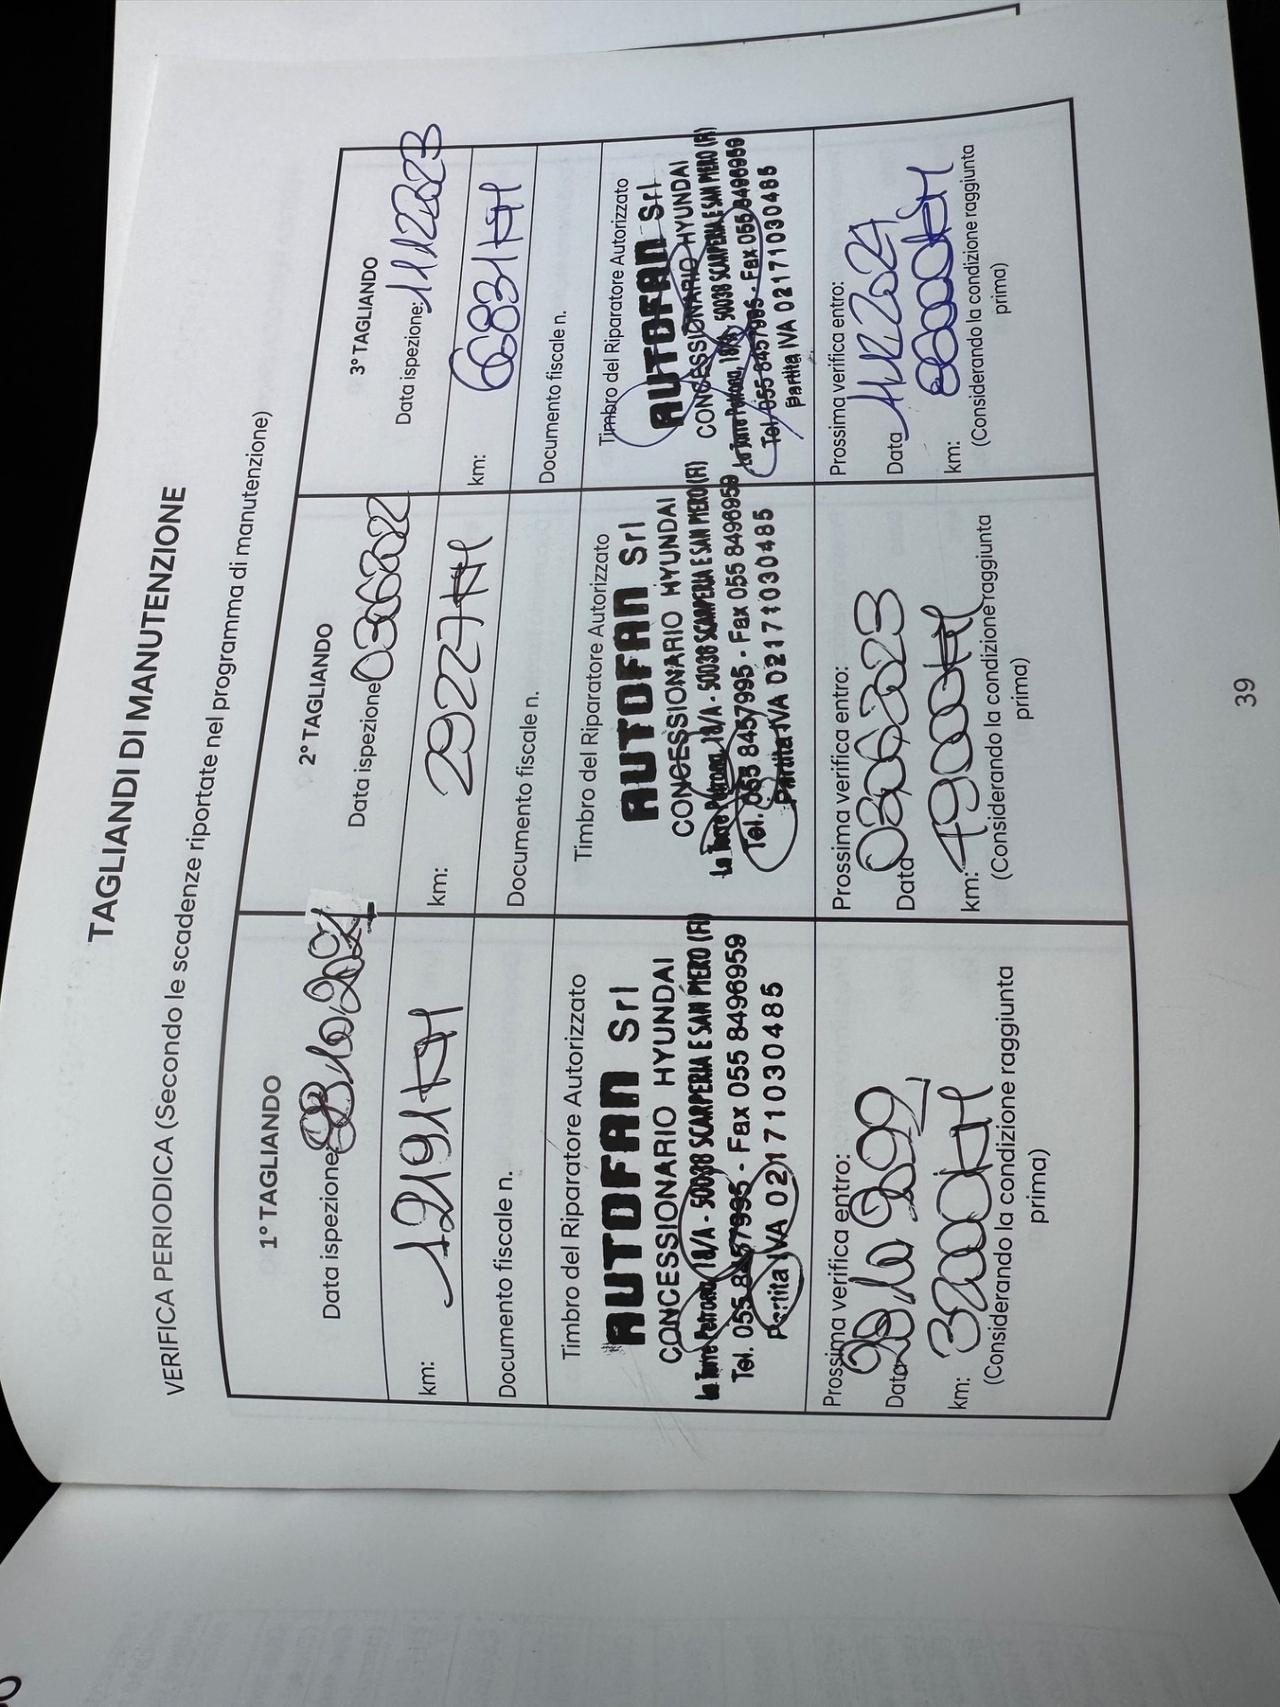 TAGLIANDI DI MANUTENZIONE
VERIFICA PERIODICA (Secondo le scadenze riportate nel programma di manutenzione)
1° TAGLIANDO
Data ispezione:
km: 12191 KM
Documento fiscale n.
Timbro del Riparatore Autorizzato
AUTOFAN Srl
CONCESSIONARIO HYUNDAI
La Torre Petrona, 18/A - 50038 SCARPERIA E SAN PIERO (FI)
Tel. 055 8457995 - Fax 055 8496959
Partita IVA 02171030485
Prossima verifica entro:
Data
km: 32000 KM
(Considerando la condizione raggiunta
prima)
2° TAGLIANDO
Data ispezione 03062022
km: 29227 KM
Documento fiscale n.
Timbro del Riparatore Autorizzato
AUTOFAN Srl
CONCESSIONARIO HYUNDAI
La Torre Petrona, 18/A - 50038 SCARPERIA E SAN PIERO (FI)
Tel. 055 8457995 - Fax 055 8496959
Partita IVA 02171030485
Prossima verifica entro:
Data 03062023
km: 49000 KM
(Considerando la condizione raggiunta
prima)
3° TAGLIANDO
Data ispezione:
km: 66831 KM
Documento fiscale n.
Timbro del Riparatore Autorizzato
AUTOFAN Srl
CONCESSIONARIO HYUNDAI
La Torre Petrona, 18/A - 50038 SCARPERIA E SAN PIERO (FI)
Tel. 055 8457995 - Fax 055 8496959
Partita IVA 02171030485
Prossima verifica entro:
Data
km:
(Considerando la condizione raggiunta
prima)
39